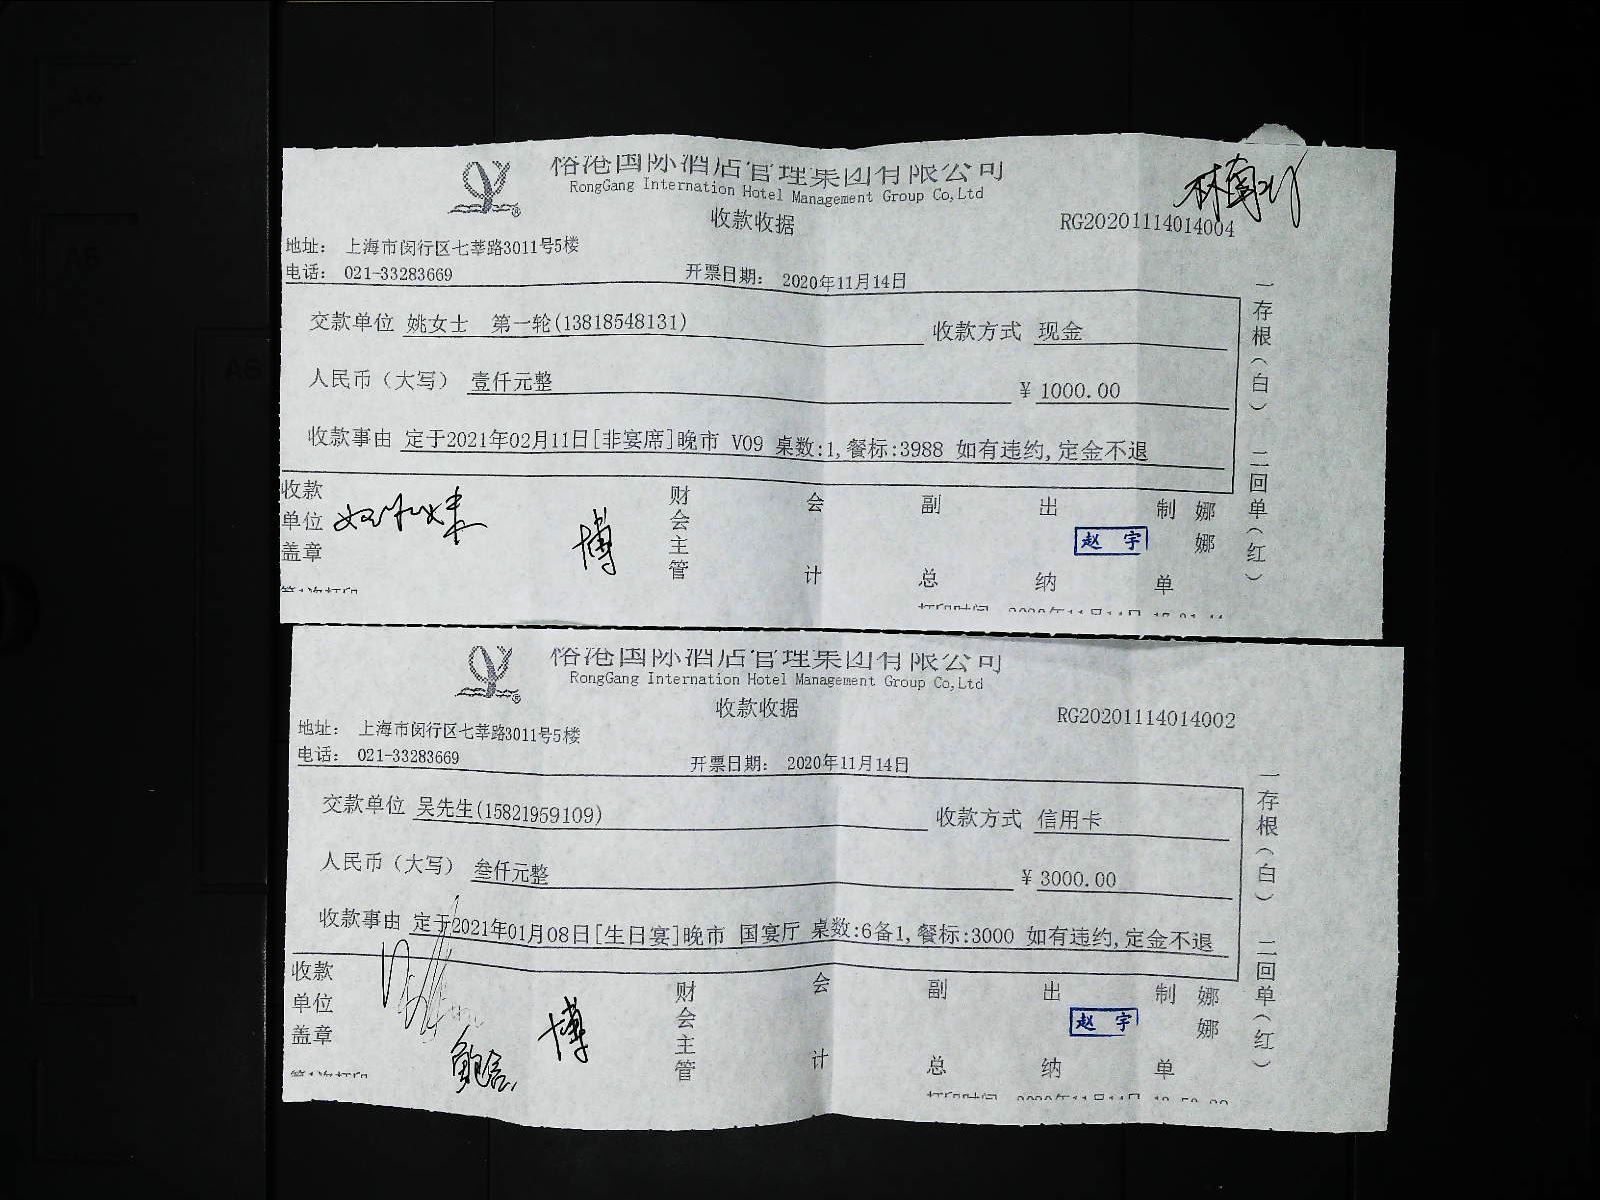 裕港国际酒店管理集团有限公司
RongGang Internation Hotel Management Group Co,Ltd
收款收据
RG20201114014004
地址: 上海市闵行区七莘路3011号5楼
电话: 021-33283669
开票日期: 2020年11月14日
交款单位 姚女士 第一轮(13818548131)
收款方式 现金
人民币(大写) 壹仟元整
¥ 1000.00
收款事由 定于2021年02月11日[非宴席]晚市 V09 桌数:1,餐标:3988 如有违约,定金不退
收款单位盖章
博
财会主管
会计
副总
出纳
赵宇
制单
娜娜
一存根(白) 二回单(红)
第1次打印
打印时间
裕港国际酒店管理集团有限公司
RongGang Internation Hotel Management Group Co,Ltd
收款收据
RG20201114014002
地址: 上海市闵行区七莘路3011号5楼
电话: 021-33283669
开票日期: 2020年11月14日
交款单位 吴先生(15821959109)
收款方式 信用卡
人民币(大写) 叁仟元整
¥ 3000.00
收款事由 定于2021年01月08日[生日宴]晚市 国宴厅 桌数:6备1,餐标:3000 如有违约,定金不退
收款单位盖章
博
财会主管
会计
副总
出纳
赵宇
制单
娜娜
一存根(白) 二回单(红)
第1次打印
打印时间